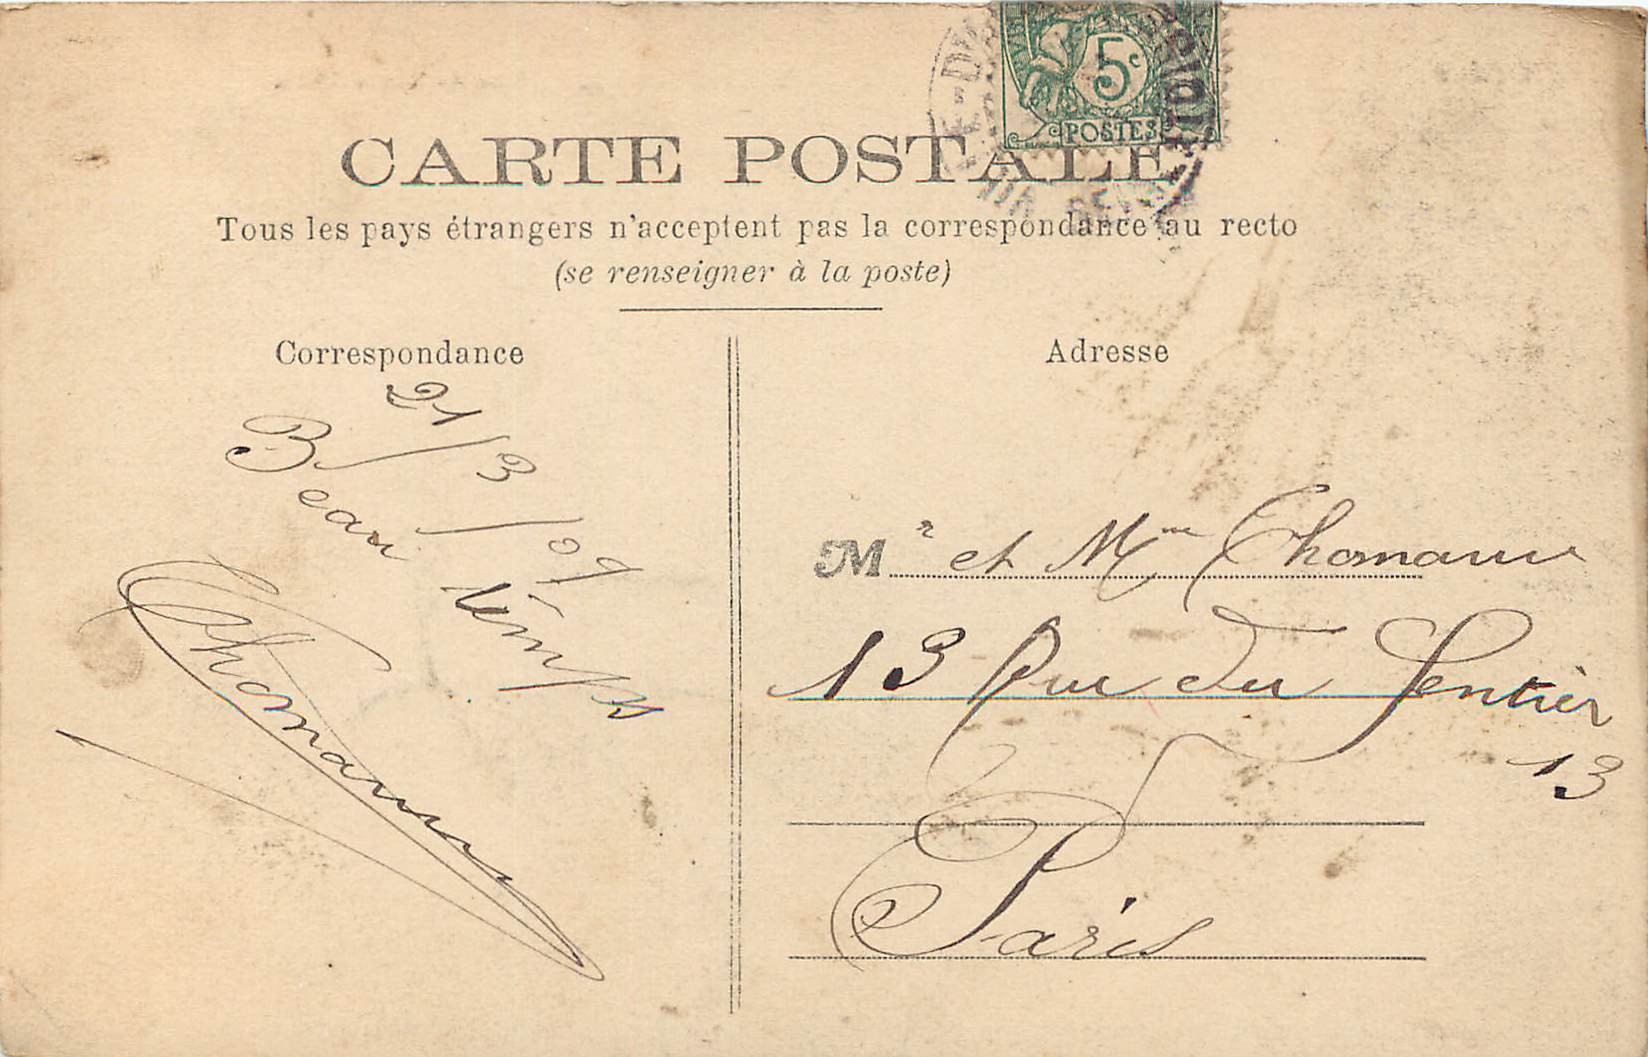 5c
POSTES
CARTE POSTALE
Tous les pays étrangers n'acceptent pas la correspondance au recto
(se renseigner à la poste)
Correspondance
Adresse
21/3/09
Beau temps
Thomann
Mr et Mme Thomann
13 Rue du Sentier
13
Paris